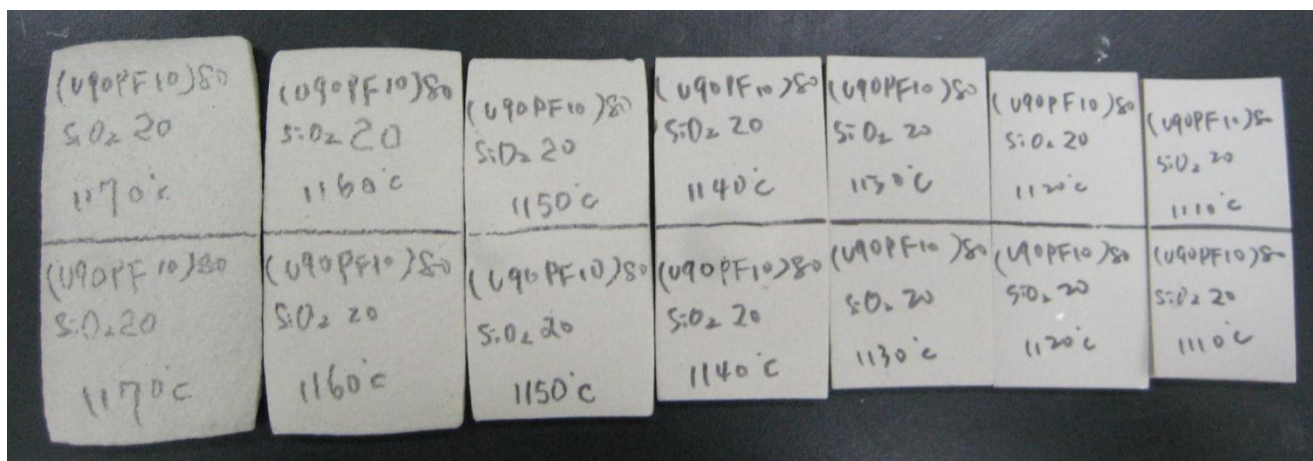 (U90PF10)80
SiO₂ 20
1170°C
(U90PF10)80
SiO₂ 20
1160°C
(U90PF10)80
SiO₂ 20
1150°C
(U90PF10)80
SiO₂ 20
1140°C
(U90PF10)80
SiO₂ 20
1130°C
(U90PF10)80
SiO₂ 20
1120°C
(U90PF10)80
SiO₂ 20
1110°C
(U90PF10)80
SiO₂ 20
1170°C
(U90PF10)80
SiO₂ 20
1160°C
(U90PF10)80
SiO₂ 20
1150°C
(U90PF10)80
SiO₂ 20
1140°C
(U90PF10)80
SiO₂ 20
1130°C
(U90PF10)80
SiO₂ 20
1120°C
(U90PF10)80
SiO₂ 20
1110°C